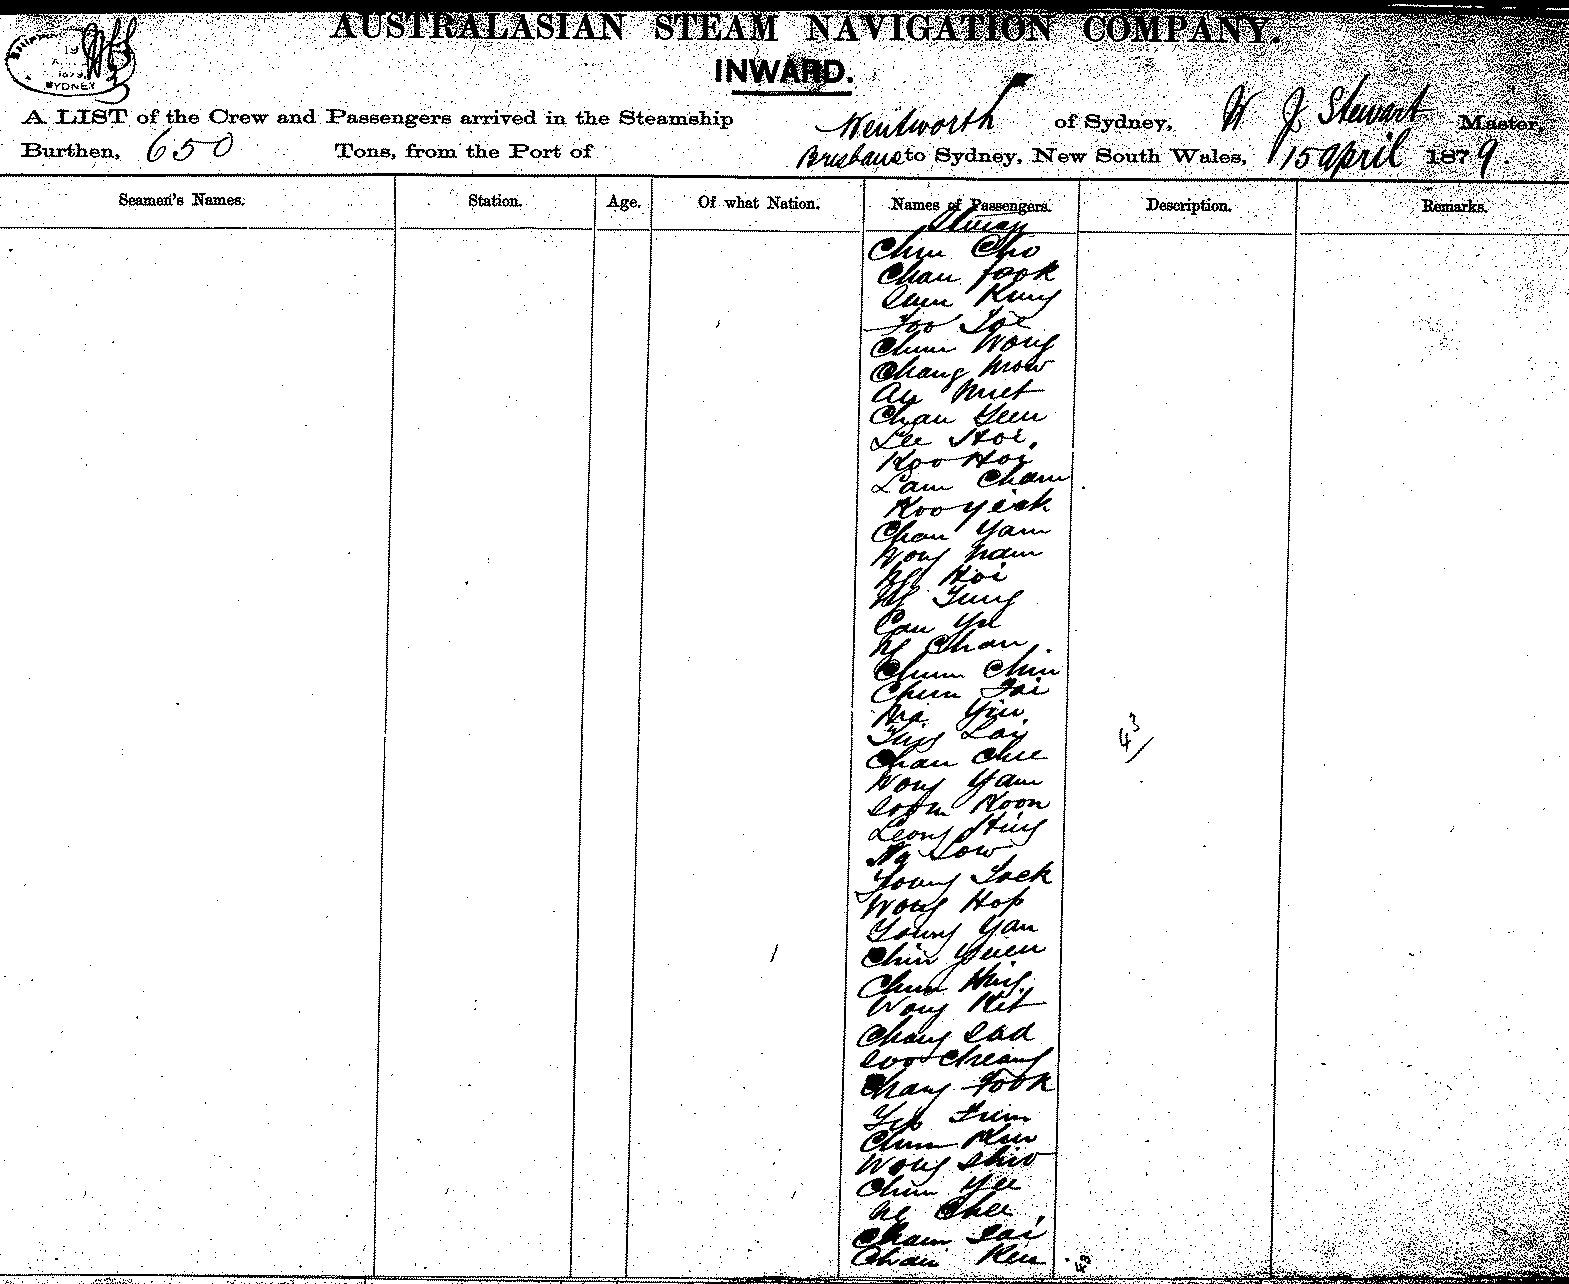 AUSTRALASIAN STEAM NAVIGATION COMPANY.
INWARD.
SYDNEY
A LIST of the Crew and Passengers arrived in the Steamship Wentworth of Sydney, W J Stewart Master,
Burthen, 650 Tons, from the Port of Brisbane to Sydney, New South Wales, 15 April 1879.
Seamen's Names. Station. Age. Of what Nation. Names of Passengers. Description. Remarks.
Chin Cho
Chan fook
Sam Kung
Foo
Chun Wong
Chang mow
Chan Yeen
Lee Hoi.
Koo Hoi
Lam Cham
Koo yick
Chan Yam
Wong Nam
Ng Hoi
Ng Tung
Yu
Ng Chan
Chum Chin
Chun Tai
43
Lay
Chan Chee
Wong Yam
Soon Koon
Leong Hing
Ng Low
Young Tack
Wong Hop
Young Yan
Chin Yuen
Chun Hing
Wong Kit
Chang Sad
Soo Cheang
Chang Fook
Yip
Chun
Wong Shiv
Chun Yee
Ng Chee
Cham Tai
Chan Ken
43